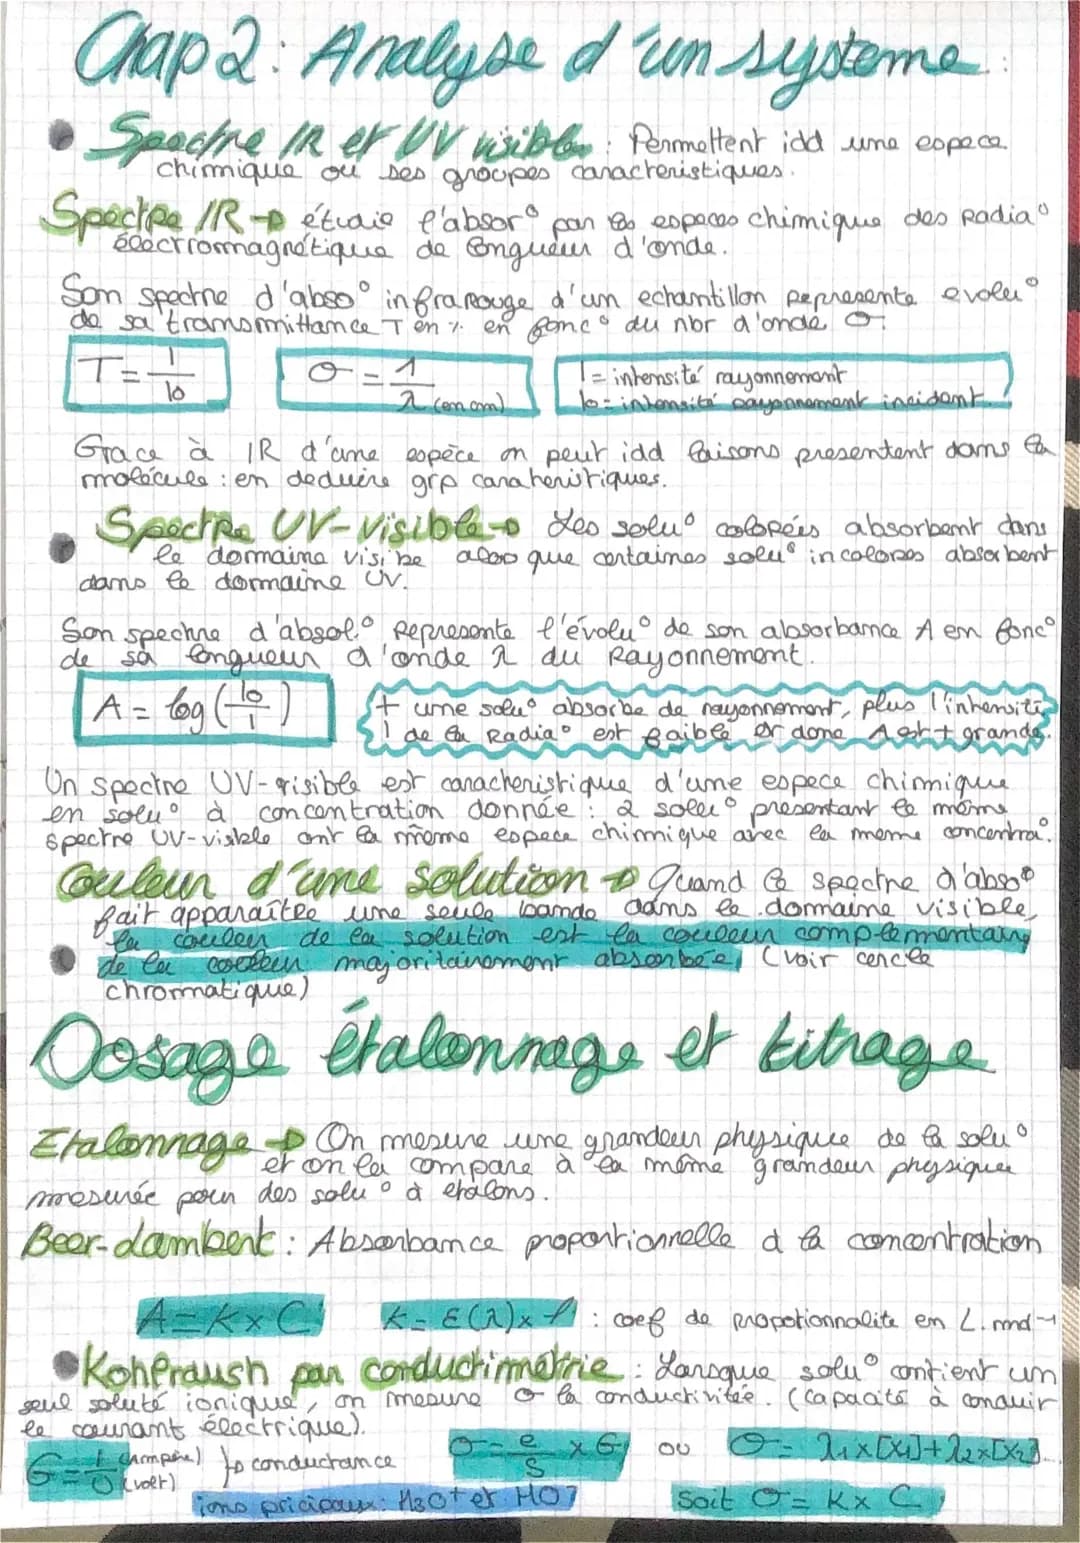 Chap 2 : Analyse d'un systeme :
Spectre IR et UV visible : Permettent idd une espece
chimique ou ses groupes caracteristiques.
Spectre IR → étudie l'absor° par les espaces chimique des radia°
électromagnétique de longueur d'onde.
Son spectre d'abso° infrarouge d'un echantillon represente evolu°
de sa transmittance T en % en fonc° du nbr d'onde σ.
T = I/I0
σ = 1/λ (en cm)
I = intensité rayonnement
I0 = intensité rayonnement incident.
Grace à IR d'une espèce on peut idd liaisons presentent dans la
molécule : en deduire grp caracteristiques.
Spectre UV-visible → Les solu° colorées absorbent dans
le domaine visibe alors que certaines solu° incolores absorbent
dans le domaine UV.
Son spectre d'absol° represente l'évolu° de son absorbance A en fonc°
de sa longueur d'onde λ du Rayonnement.
A = log (I0/I)
+ une solu° absorbe de rayonnement, plus l'intensité
I de la Radia° est faible et donc A est + grande.
Un spectre UV-visible est caracteristique d'une espece chimique
en solu° à concentration donnée : 2 solu° presentant le même
spectre UV-visible ont la même espece chimique avec la meme concentra°.
Couleur d'une solution → Quand le spectre d'abso°
fait apparaître une seule bande dans le domaine visible,
la couleur de la solution est la couleur complementaire
de la couleur majoritairement absorbée, (voir cercle
chromatique)
Dosage étalonnage et titrage
Etalonnage → On mesure une grandeur physique de la solu°
et on la compare à la même grandeur physique
mesurée pour des solu° à etalons.
Beer-Lambert : Absorbance proportionnelle à la concentration
A = K x C
K = ε(λ) x l : coef de propotionnalite en L.mol-1
Kohlrausch par conductimétrie : Lorsque solu° contient un
seul soluté ionique, on mesure σ la conductivitée. (capacité à conduir
le courant électrique).
G = I/U (ampère) (volt) } → conductance
σ = e/S x G ou σ = λ1x[X1]+λ2x[X2]...
ions pricipaux : H3O+ et HO-
Soit σ = K x C